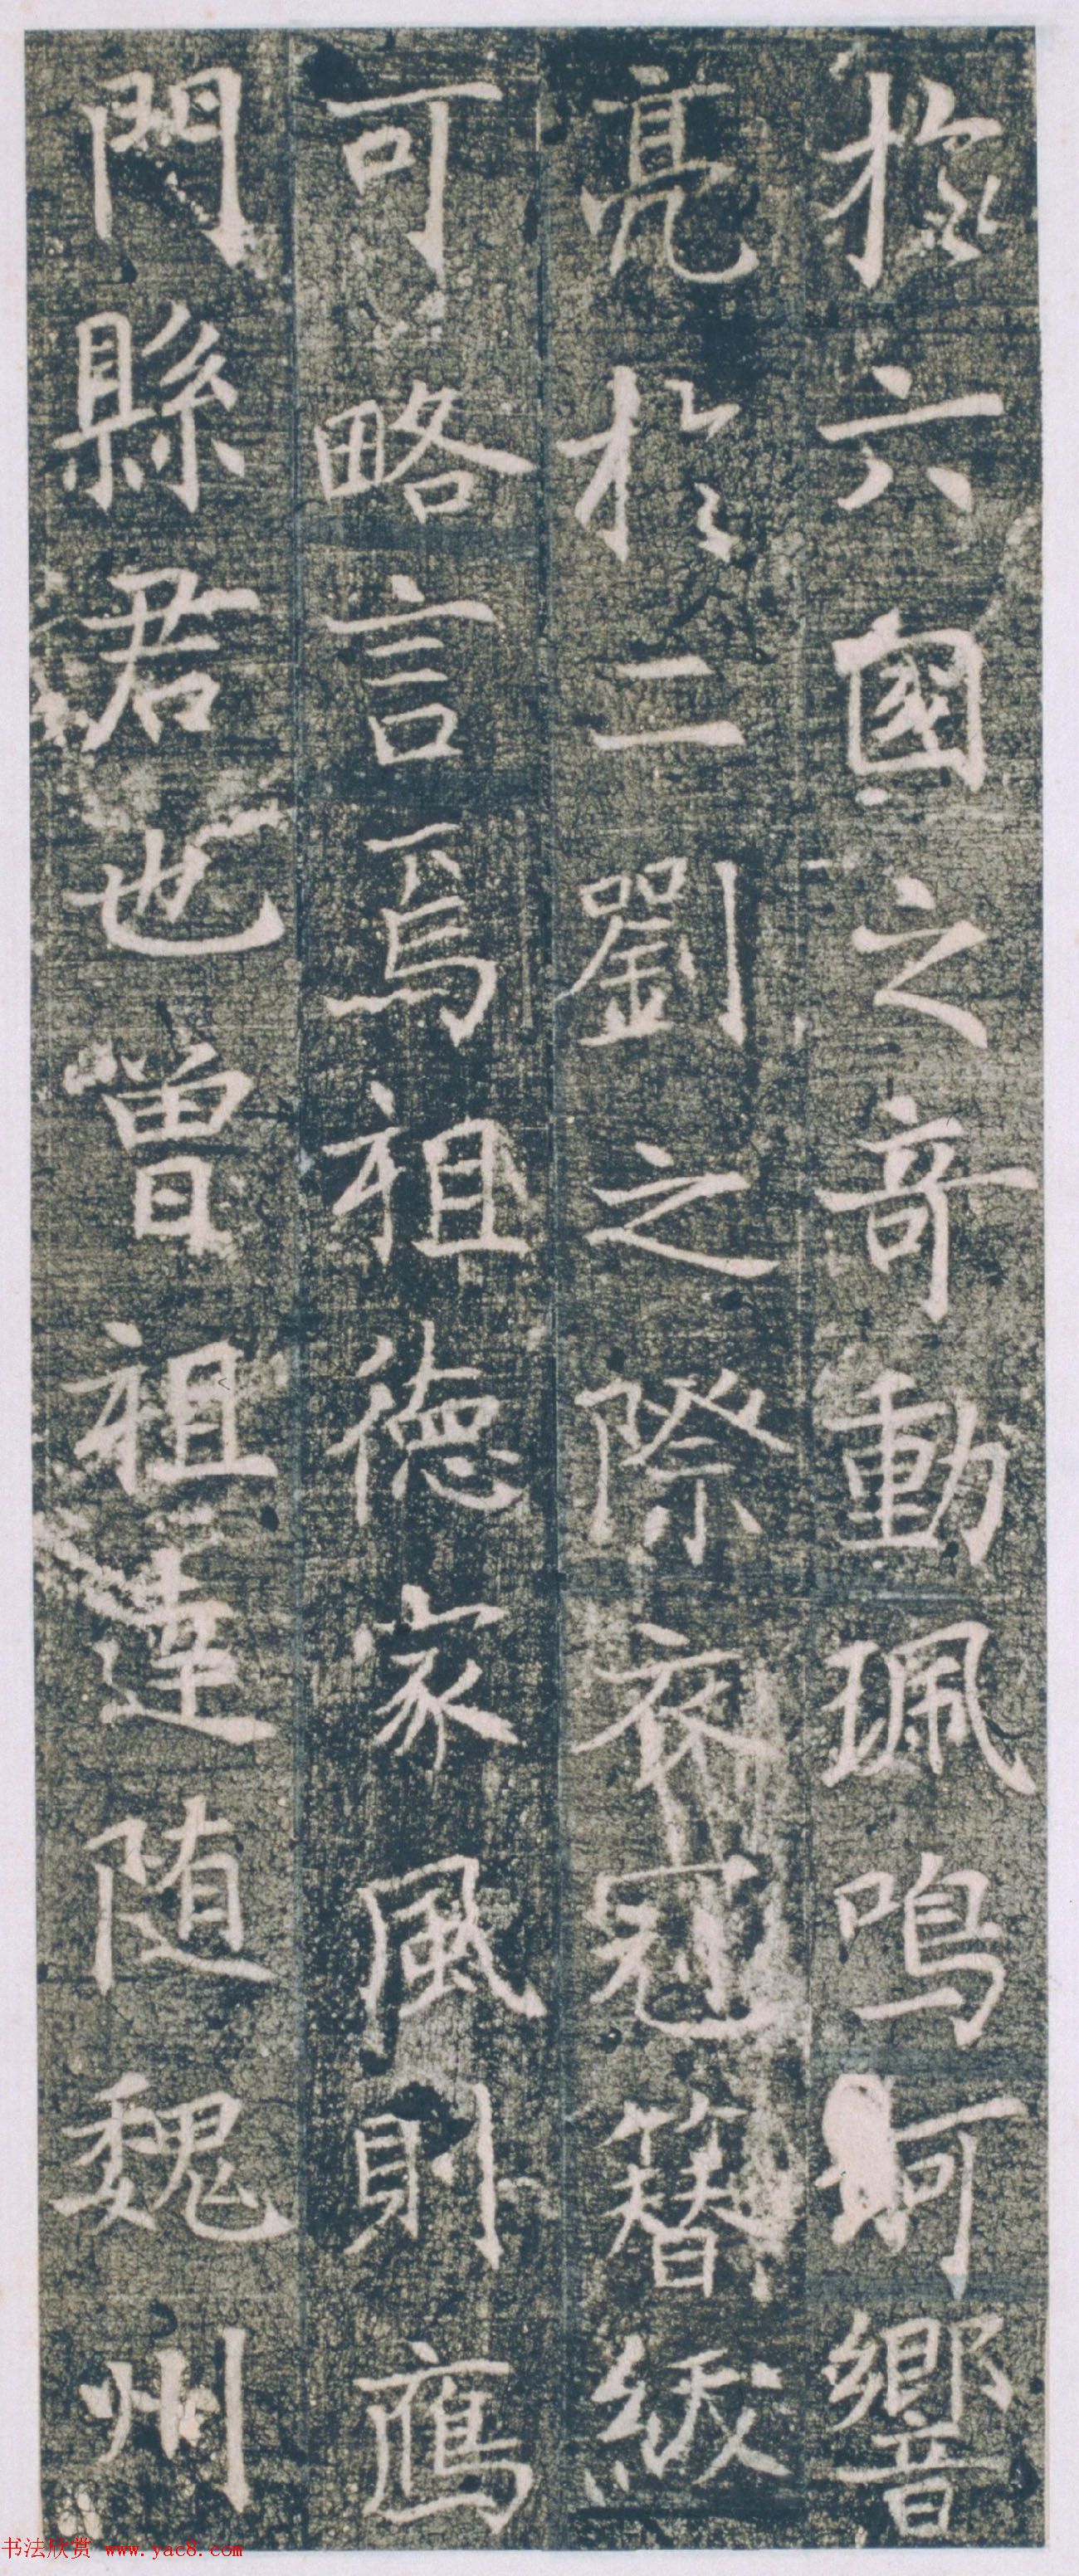 於六國之音動珮鳴珂響
亮於二劉之際衣冠簪紱
可略言焉祖德家風則鴈
門縣君也曾祖達随魏州
书法欣赏 www.yac8.com